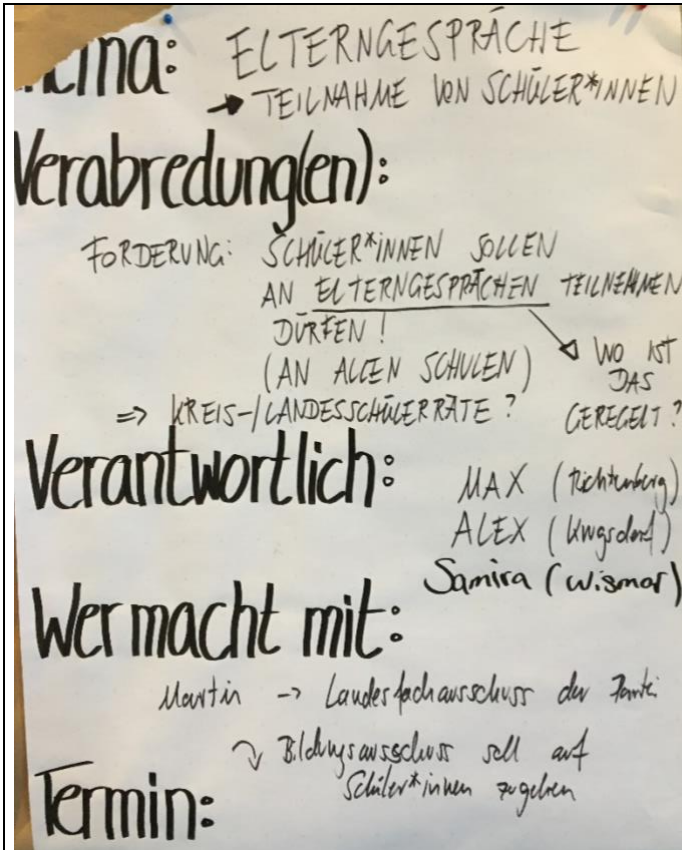 Thema: ELTERNGESPRÄCHE
→ TEILNAHME VON SCHÜLER*INNEN
Verabredung(en):
FORDERUNG: SCHÜLER*INNEN SOLLEN
AN ELTERNGESPRÄCHEN TEILNEHMEN
DÜRFEN!
(AN ALLEN SCHULEN)
WO IST
DAS
GEREGELT?
=> KREIS-/LANDESSCHÜLERRÄTE?
Verantwortlich:
MAX (Richtenberg)
ALEX (
Samira (Wismar)
Wer macht mit:
Martin -> Landesfachausschuss der Partei
↷ Bildungsausschuss soll auf
Schüler*innen zugehen
Termin: